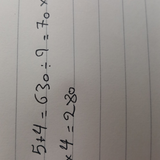 5+4=630÷9=70×
×4=280